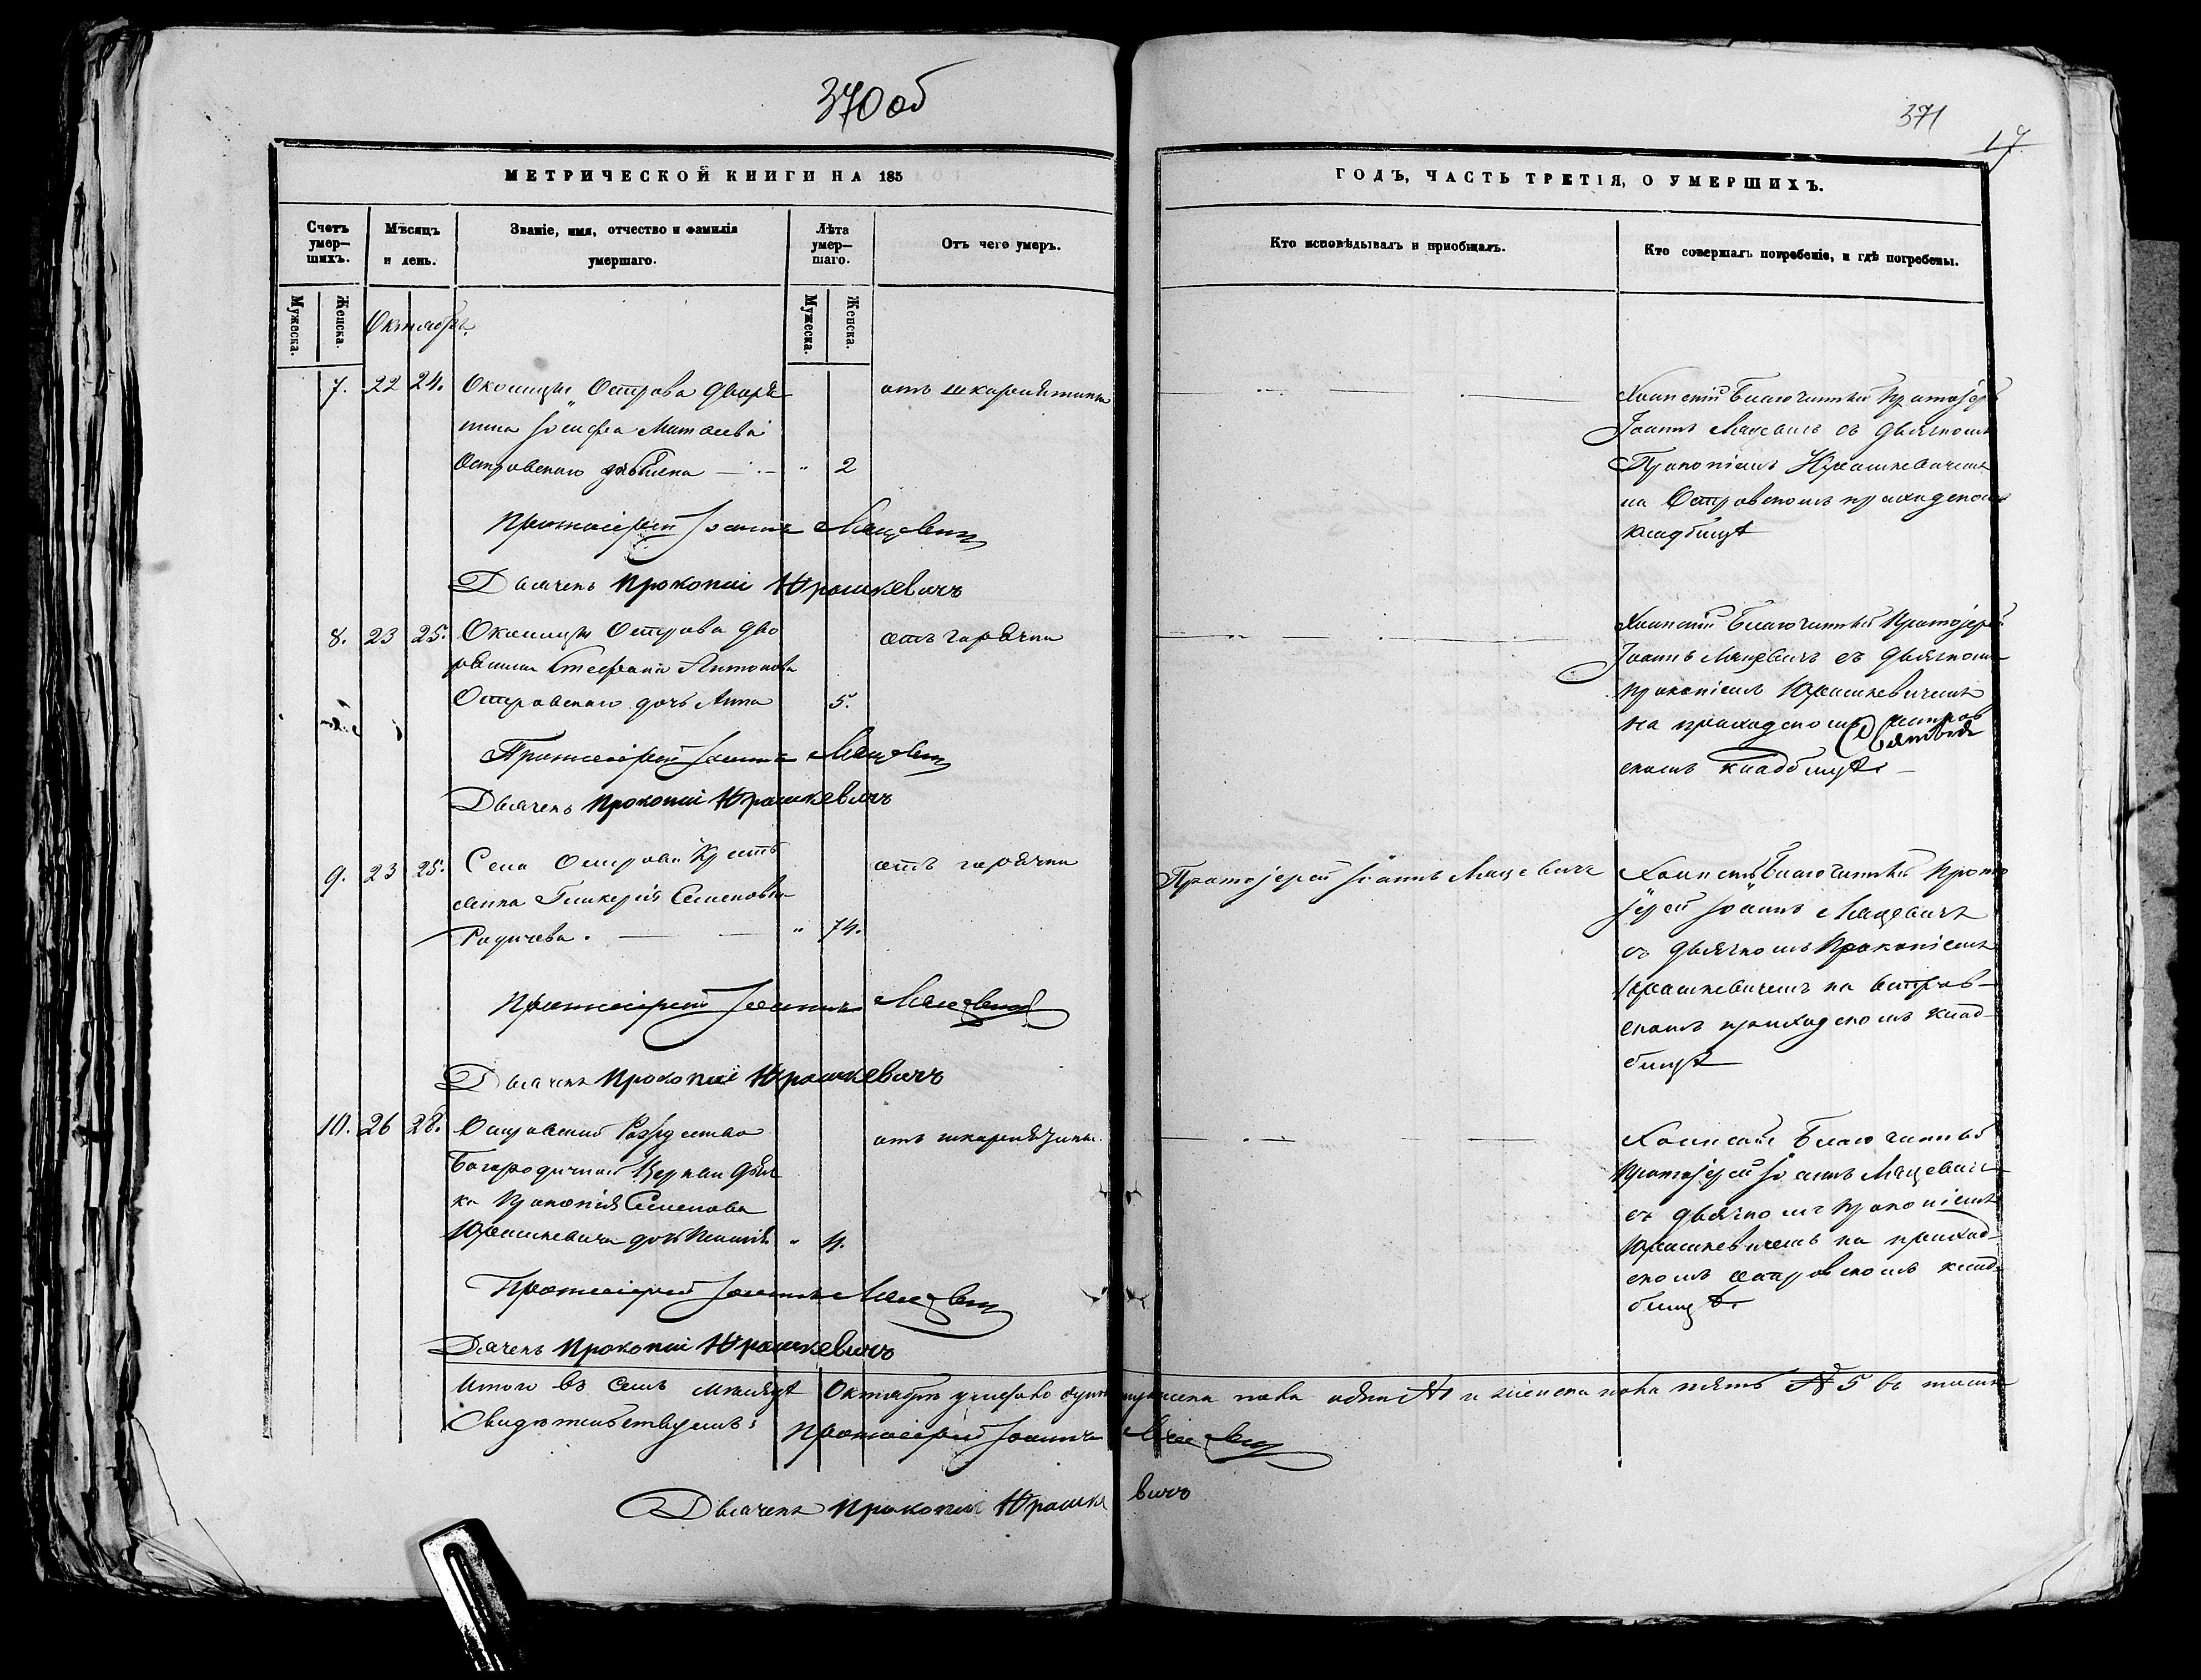 370 об
371
17
МЕТРИЧЕСКОЙ КНИГИ НА 185
ГОДЪ, ЧАСТЬ ТРЕТІЯ, О УМЕРШИХЪ.
Счетъ умер-шихъ.
Мѣсяцъ и день.
Званіе, имя, отчество и фамилія умершаго.
Лѣта умер-шаго.
Отъ чего умеръ.
Кто исповѣдывалъ и пріобщалъ.
Кто совершалъ погребеніе, и гдѣ погребены.
Мужеска.
Женска.
Октябрь.
Мужеска.
Женска.
7. 22 24. Околицы Острова дворя
нина Іосифа Матѳеева
Островскаго - " 2
отъ шкарлятины
Протоіерей Іоаннъ Мацевичъ
Дьячекъ Прокопій Юрашкевичъ
Благочинный Протоіерей
Іоаннъ Мацевичъ съ дьячкомъ
Прокопіемъ Юрашкевичемъ
на Островскомъ приходскомъ
кладбищѣ
8. 23 25. Околицы Острова дво
рянина Стефана Антонова
Островскаго дочь Анна 5.
отъ горячки
Протоіерей Іоаннъ Мацевичъ
Дьячекъ Прокопій Юрашкевичъ
Благочинный Протоіерей
Іоаннъ Мацевичъ съ дьячкомъ
Прокопіемъ Юрашкевичемъ
на приходскомъ
скомъ кладбищѣ.
9. 23 25. Села Острова Кресть
янка Гликерія Семеновна
Радичева. - " 74.
отъ горячки
Протоіерей Іоаннъ Мацевичъ
Протоіерей Іоаннъ Мацевичъ
Дьячекъ Прокопій Юрашкевичъ
Благочинный Прото
іерей Іоаннъ Мацевичъ
съ дьячкомъ Прокопіемъ
Юрашкевичемъ на Остров-
скомъ приходскомъ клад-
бищѣ
10. 26 28. Островской Рождество
Богородичной Церкви дьяч
ка Прокопія Семенова
Юрашкевича дочь " 4.
отъ шкарлятины.
Протоіерей Іоаннъ Мацевичъ
Дячекъ Прокопій Юрашкевичъ
Благочинный
Протоіерей Іоаннъ Мацевичъ
съ дьячкомъ Прокопіемъ
Юрашкевичемъ на приход-
скомъ островскомъ клад-
бищѣ.
Итого въ семъ мѣсяцѣ Октябрѣ умерло мужеска пола одинъ №1 и женска пола пять № 5 въ томъ
Свидѣтельствуемъ: Протоіерей Іоаннъ Мацевичъ
Дьячекъ Прокопій Юрашкевичъ